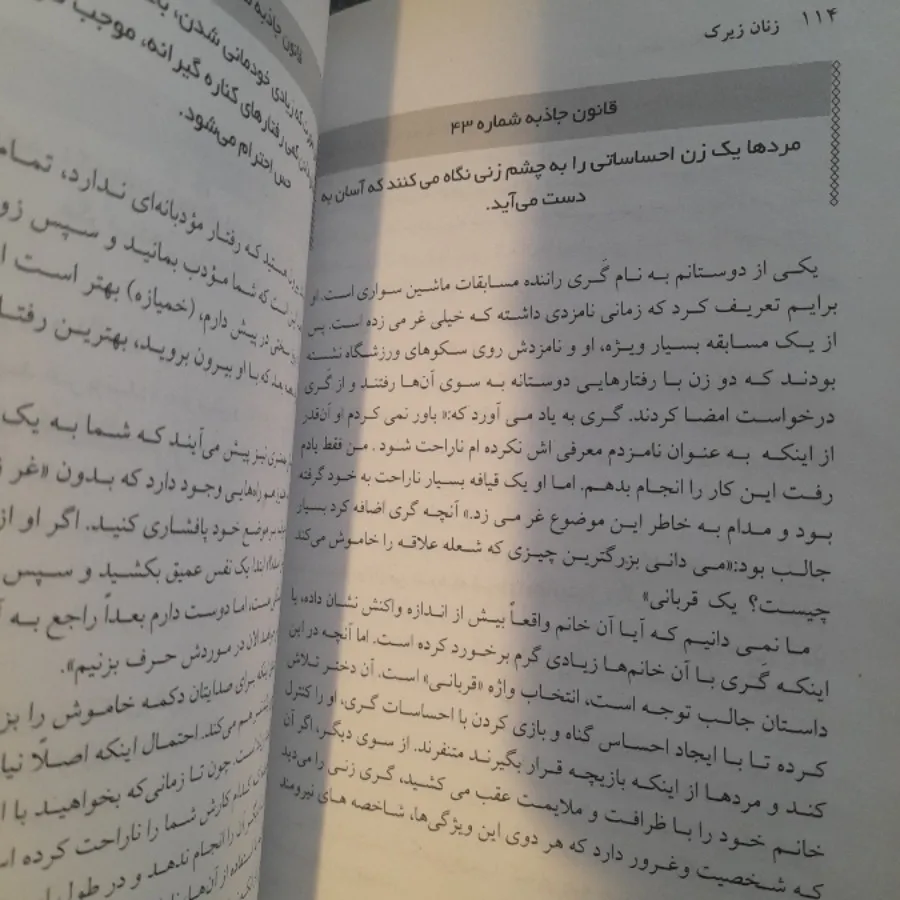 ۱۱۴ زنان زیرک
قانون جاذبه شماره ۴۳
مردها یک زن احساساتی را به چشم زنی نگاه می‌کنند که آسان به
دست می‌آید.
یکی از دوستانم به نام گَری راننده مسابقات ماشین سواری است. او
برایم تعریف کرد که زمانی نامزدی داشته که خیلی غر می زده است. پس
از یک مسابقه بسیار ویژه، او و نامزدش روی سکوهای ورزشگاه نشسته
بودند که دو زن با رفتارهایی دوستانه به سوی آن‌ها رفتند و از گَری
درخواست امضا کردند. گری به یاد می آورد که:« باور نمی کردم او آن‌قدر
از اینکه به عنوان نامزدم معرفی اش نکرده ام ناراحت شود. من فقط یادم
رفت این کار را انجام بدهم. اما او یک قیافه بسیار ناراحت به خود گرفته
بود و مدام به خاطر این موضوع غر می زد.» آنچه گری اضافه کرد بسیار
جالب بود:«می دانی بزرگترین چیزی که شعله علاقه را خاموش می‌کند
چیست؟ یک قربانی»
ما نمی دانیم که آیا آن خانم واقعاً بیش از اندازه واکنش نشان داده، یا
اینکه گَری با آن خانم‌ها زیادی گرم برخورد کرده است. اما آنچه در این
داستان جالب توجه است، انتخاب واژه «قربانی» است. آن دختر تلاش
کرده تا با ایجاد احساس گناه و بازی کردن با احساسات گری، او را کنترل
کند و مردها از اینکه بازیچه قرار بگیرند متنفرند. از سوی دیگر، اگر آن
خانم خود را با ظرافت و ملایمت عقب می کشید، گری زنی را می‌دید
که شخصیت وغرور دارد که هر دوی این ویژگی‌ها، شاخصه های نیرومند
قانون جاذبه
زیادی خودمانی شدن،
رفتارهای کناره گیرانه، موجب
حس احترام می‌شود.
هستید که رفتار مؤدبانه‌ای ندارد،
است که شما مؤدب بمانید و سپس
سختی در پیش دارم، (خمیازه) بهتر است
که با او بیرون بروید، بهترین
نیز پیش می‌آیند که شما به یک
راه‌هایی وجود دارد که بدون «غر
موضع خود پافشاری کنید. اگر او از
ابتدا یک نفس عمیق بکشید و سپس
اما دوست دارم بعداً راجع به
الان در موردش حرف بزنیم».
برای صدایتان دکمه خاموش را
هم می‌کند. احتمال اینکه اصلاً
چون تا زمانی‌که بخواهید با
کدام کارش شما را ناراحت کرده
را انجام ندهد و در طول
استفاده از آن‌ها